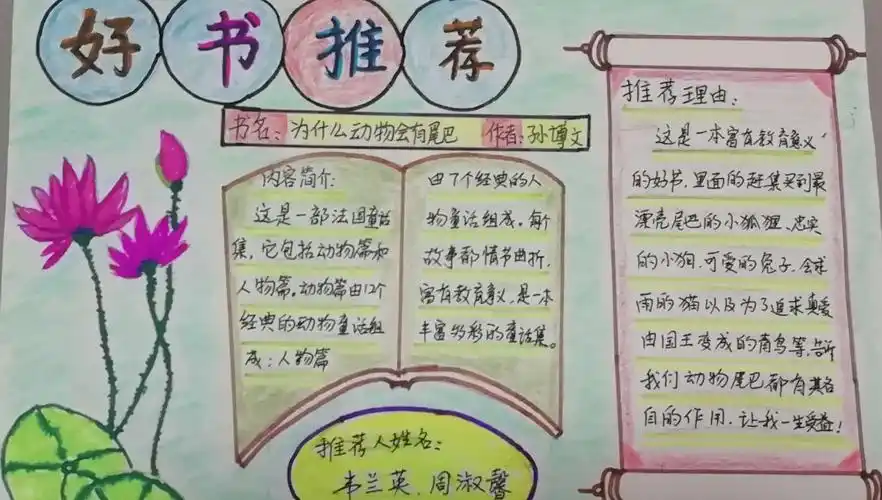 好书推荐
书名：为什么动物会有尾巴 作者：孙博文
内容简介：
这是一部法国童话
集，它包括动物篇和
人物篇，动物篇由12个
经典的动物童话组
成；人物篇
由7个经典的人
物童话组成。每个
故事都情节曲折，
富有教育意义，是一本
丰富多彩的童话集。
推荐理由：
这是一本富有教育意义
的好书，里面的赶集买到最
漂亮尾巴的小狐狸、忠实
的小狗、可爱的兔子、会求
雨的猫以及为了追求真爱
由国王变成的南鸟等，告诉
我们动物尾巴都有其各
自的作用，让我一生受益！
推荐人姓名：
韦兰英、周淑馨